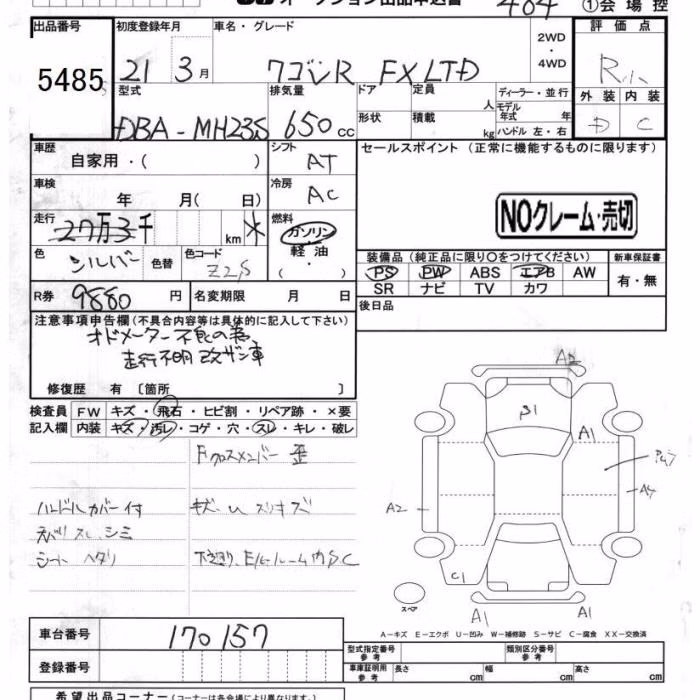 オークション出品申込書 464 ①会場控
出品番号 初度登録年月 車名・グレード 2WD・4WD 評価点
5485 21年 3月 ワゴンR FX LTD R
型式 排気量 ドア 定員 人 ディーラー・並行 外装 内装
DBA-MH23S 650cc 形状 積載 kg モデル年式 年 ハンドル 左・右 D C
車歴 自家用・( ) シフト AT セールスポイント (正常に機能するものに限ります)
車検 年 月( 日) 冷房 AC
NOクレーム・売切
走行 27万3千 km * 燃料 ガソリン 軽油 ・( )
色 シルバー 色替 色コード Z2S
装備品 (純正品に限り○をつけてください) 新車保証書
PS PW ABS エアB AW 有・無
SR ナビ TV カワ
R券 9880円 名変期限 月 日 後日品
注意事項申告欄 (不具合内容等は具体的に記入して下さい)
オドメーター不能の為、
走行不明 改ザン車
修復歴 有 [箇所 ]
検査員 FW キズ・飛石・ヒビ割・リペア跡・×要
記入欄 内装 キズ・汚レ・コゲ・穴・スレ・キレ・破レ
Fクロスメンバー歪
ハンドルカバー付 キズ・U スリキズ
スレ、シミ
シート ヘタリ 下廻り、E/gルーム内S.C
A2
S1
A1
A2
C1
スペア
A1 A1
A-キズ E-エクボ U-凹み W-補修跡 S-サビ C-腐食 XX-交換済
車台番号 170157
型式指定番号 参考 類別区分番号 参考
登録番号
車庫証明用 参考 長さ cm 幅 cm 高さ cm
希望出品コーナー (コーナーは各会場により異なります